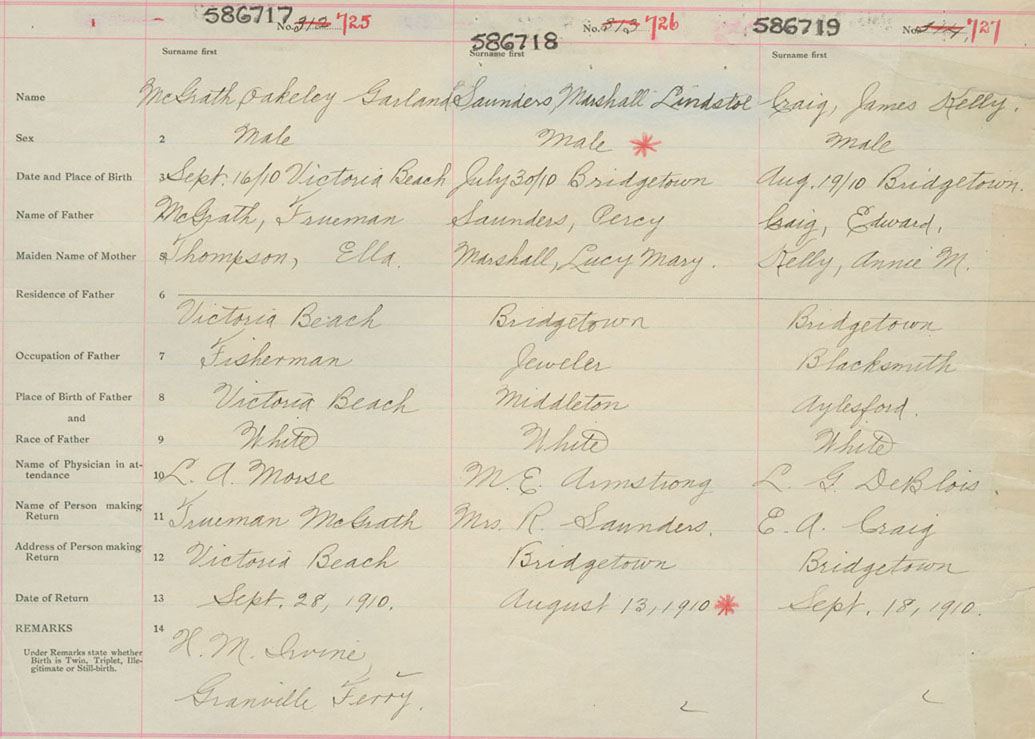 586717 No. 313 725 586718 No. 313 726 586719 No. 314, 727
Surname first Surname first Surname first
Name McGrath, Oakeley Garland Saunders, Marshall Lindstol Craig, James Kelly.
Sex 2 Male Male Male
Date and Place of Birth 3 Sept. 16/10 Victoria Beach July 30/10 Bridgetown Aug. 19/10 Bridgetown.
Name of Father McGrath, Trueman Saunders, Percy Craig, Edward.
Maiden Name of Mother 5 Thompson, Ella. Marshall, Lucy Mary. Kelly, Annie M.
Residence of Father 6
Victoria Beach Bridgetown Bridgetown
Occupation of Father 7 Fisherman Jeweler Blacksmith
Place of Birth of Father 8 Victoria Beach Middleton Aylesford.
and
Race of Father 9 White White White
Name of Physician in at-
tendance 10 L. A. Morse M. E. Armstrong L. G. DeBlois.
Name of Person making
Return 11 Trueman McGrath Mrs. R. Saunders. E. A. Craig
Address of Person making
Return 12 Victoria Beach Bridgetown Bridgetown
Date of Return 13 Sept. 28, 1910. August 13, 1910 Sept. 18, 1910.
REMARKS 14
Under Remarks state whether
Birth is Twin, Triplet, Ille-
gitimate or Still-birth.
H. M. Irvine,
Granville Ferry.